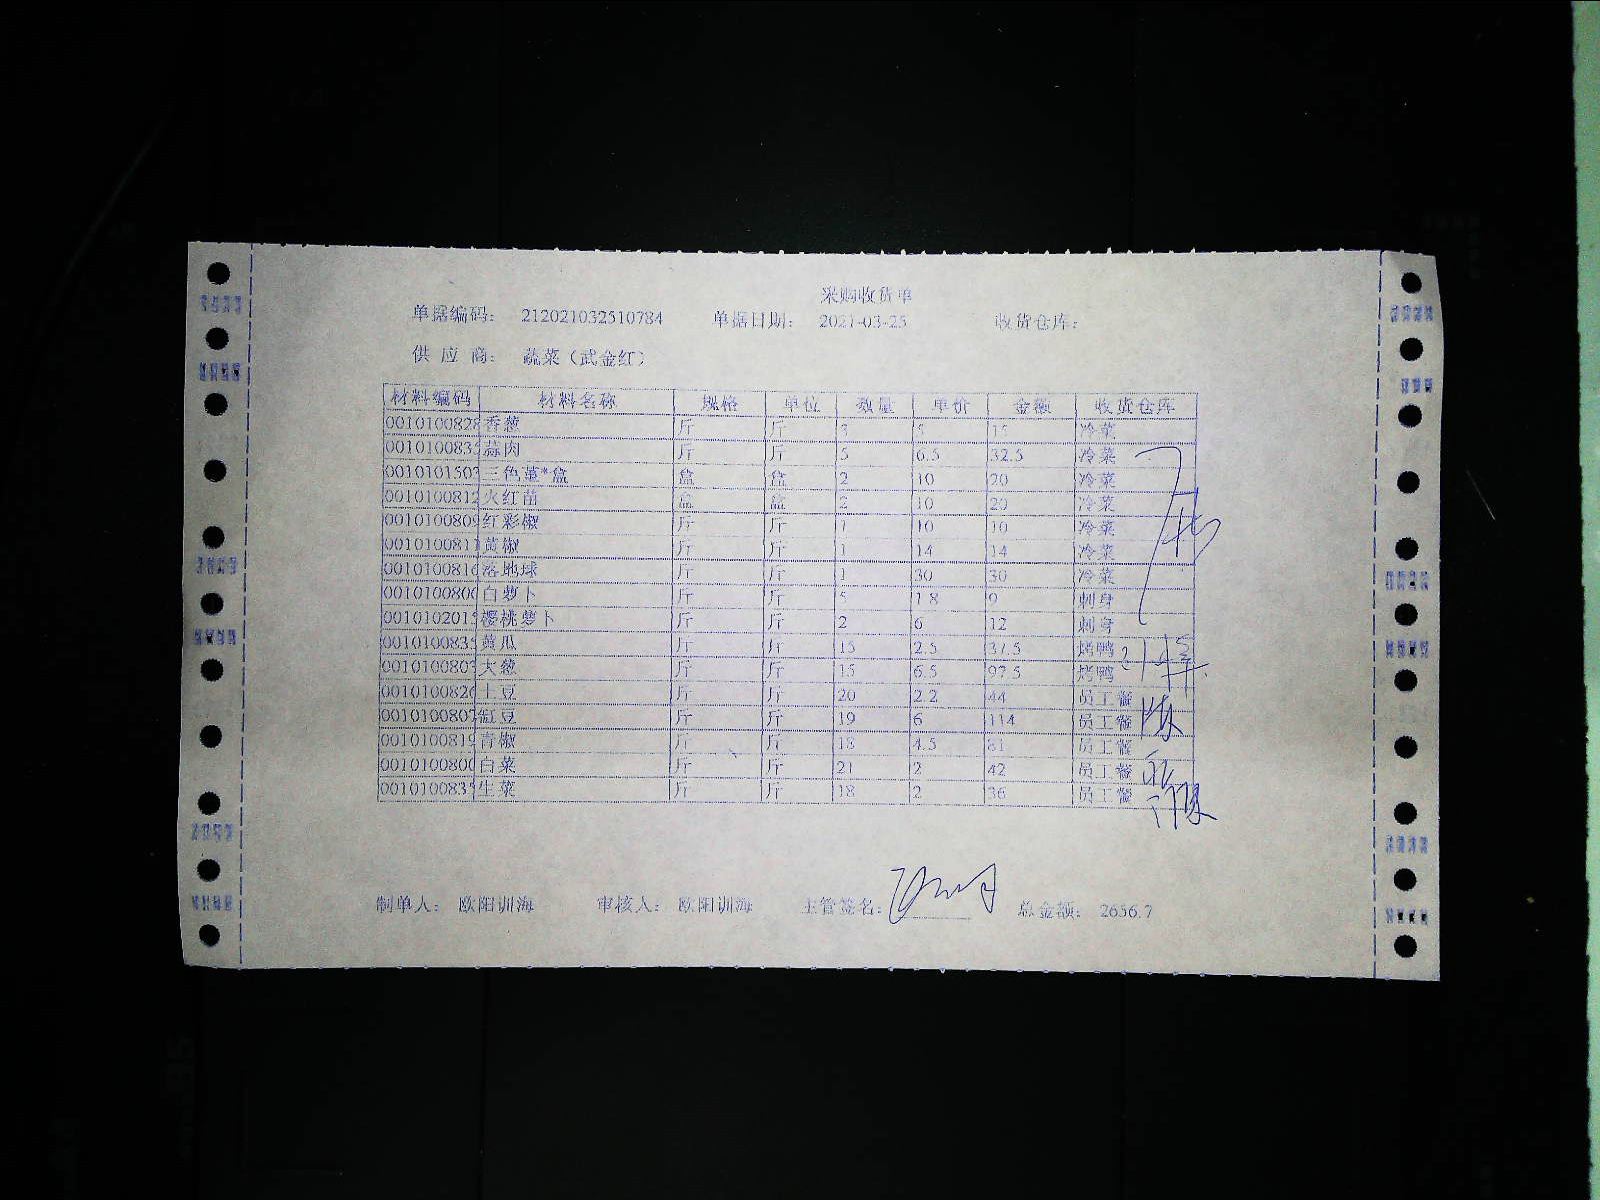 采购收货单
单据编码： 212021032510784 单据日期： 2021-03-25 收货仓库：
供 应 商： 蔬菜（武金红）
材料编码 材料名称 规格 单位 数量 单价 金额 收货仓库
0010100828 香葱 斤 斤 3 5 15 冷菜
001010083 蒜肉 斤 斤 5 6.5 32.5 冷菜
001010150 三色堇*盒 盒 盒 2 10 20 冷菜
0010100812 火红苗 盒 盒 2 10 20 冷菜
0010100809 红彩椒 斤 斤 1 10 10 冷菜
001010081 黄椒 斤 斤 1 14 14 冷菜
001010081 落地球 斤 斤 1 30 30 冷菜
001010080 白萝卜 斤 斤 5 1.8 9 刺身
001010201 樱桃萝卜 斤 斤 2 6 12 刺身
001010083 黄瓜 斤 斤 15 2.5 37.5 烤鸭
001010080 大葱 斤 斤 15 6.5 97.5 烤鸭
001010082 土豆 斤 斤 20 2.2 44 员工餐
001010080 豇豆 斤 斤 19 6 114 员工餐
001010081 青椒 斤 斤 18 4.5 81 员工餐
001010080 白菜 斤 斤 21 2 42 员工餐
001010083 生菜 斤 斤 18 2 36 员工餐
制单人： 欧阳训海 审核人： 欧阳训海 主管签名： 总金额： 2656.7